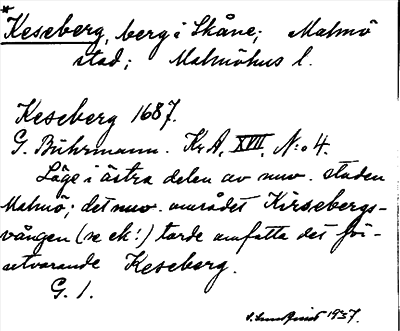 *Keseberg, berg i Skåne; Malmö
stad; Malmöhus l.
Keseberg 1687.
G. Buhrmann. Kr A, XVII, N:o 4.
Låge i östra delen av nuv. staden
Malmö; det nuv. området Kirsebergs-
vången (se ek:) torde omfatta det för-
utvarande Keseberg.
G. 1.
1937.